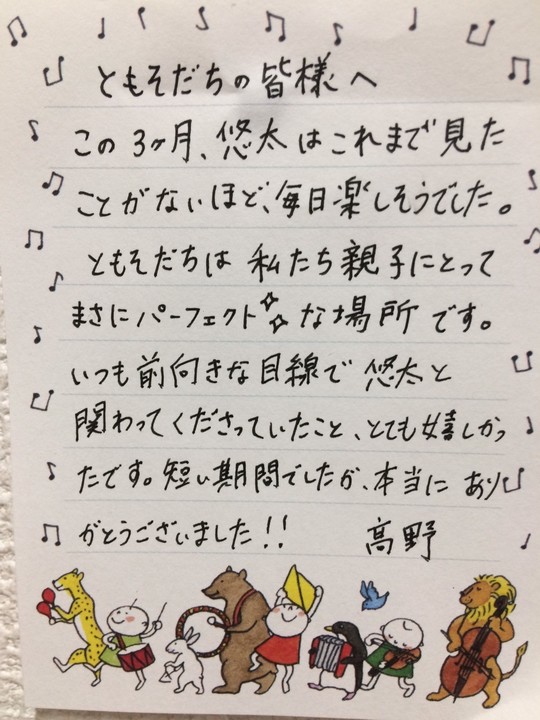 ともそだちの皆様へ
この3ヶ月、悠太はこれまで見た
ことがないほど、毎日楽しそうでした。
ともそだちは私たち親子にとって
まさにパーフェクト✨な場所です。
いつも前向きな目線で悠太と
関わってくださっていたこと、とても嬉しかっ
たです。短い期間でしたが、本当にあり
がとうございました!! 高野